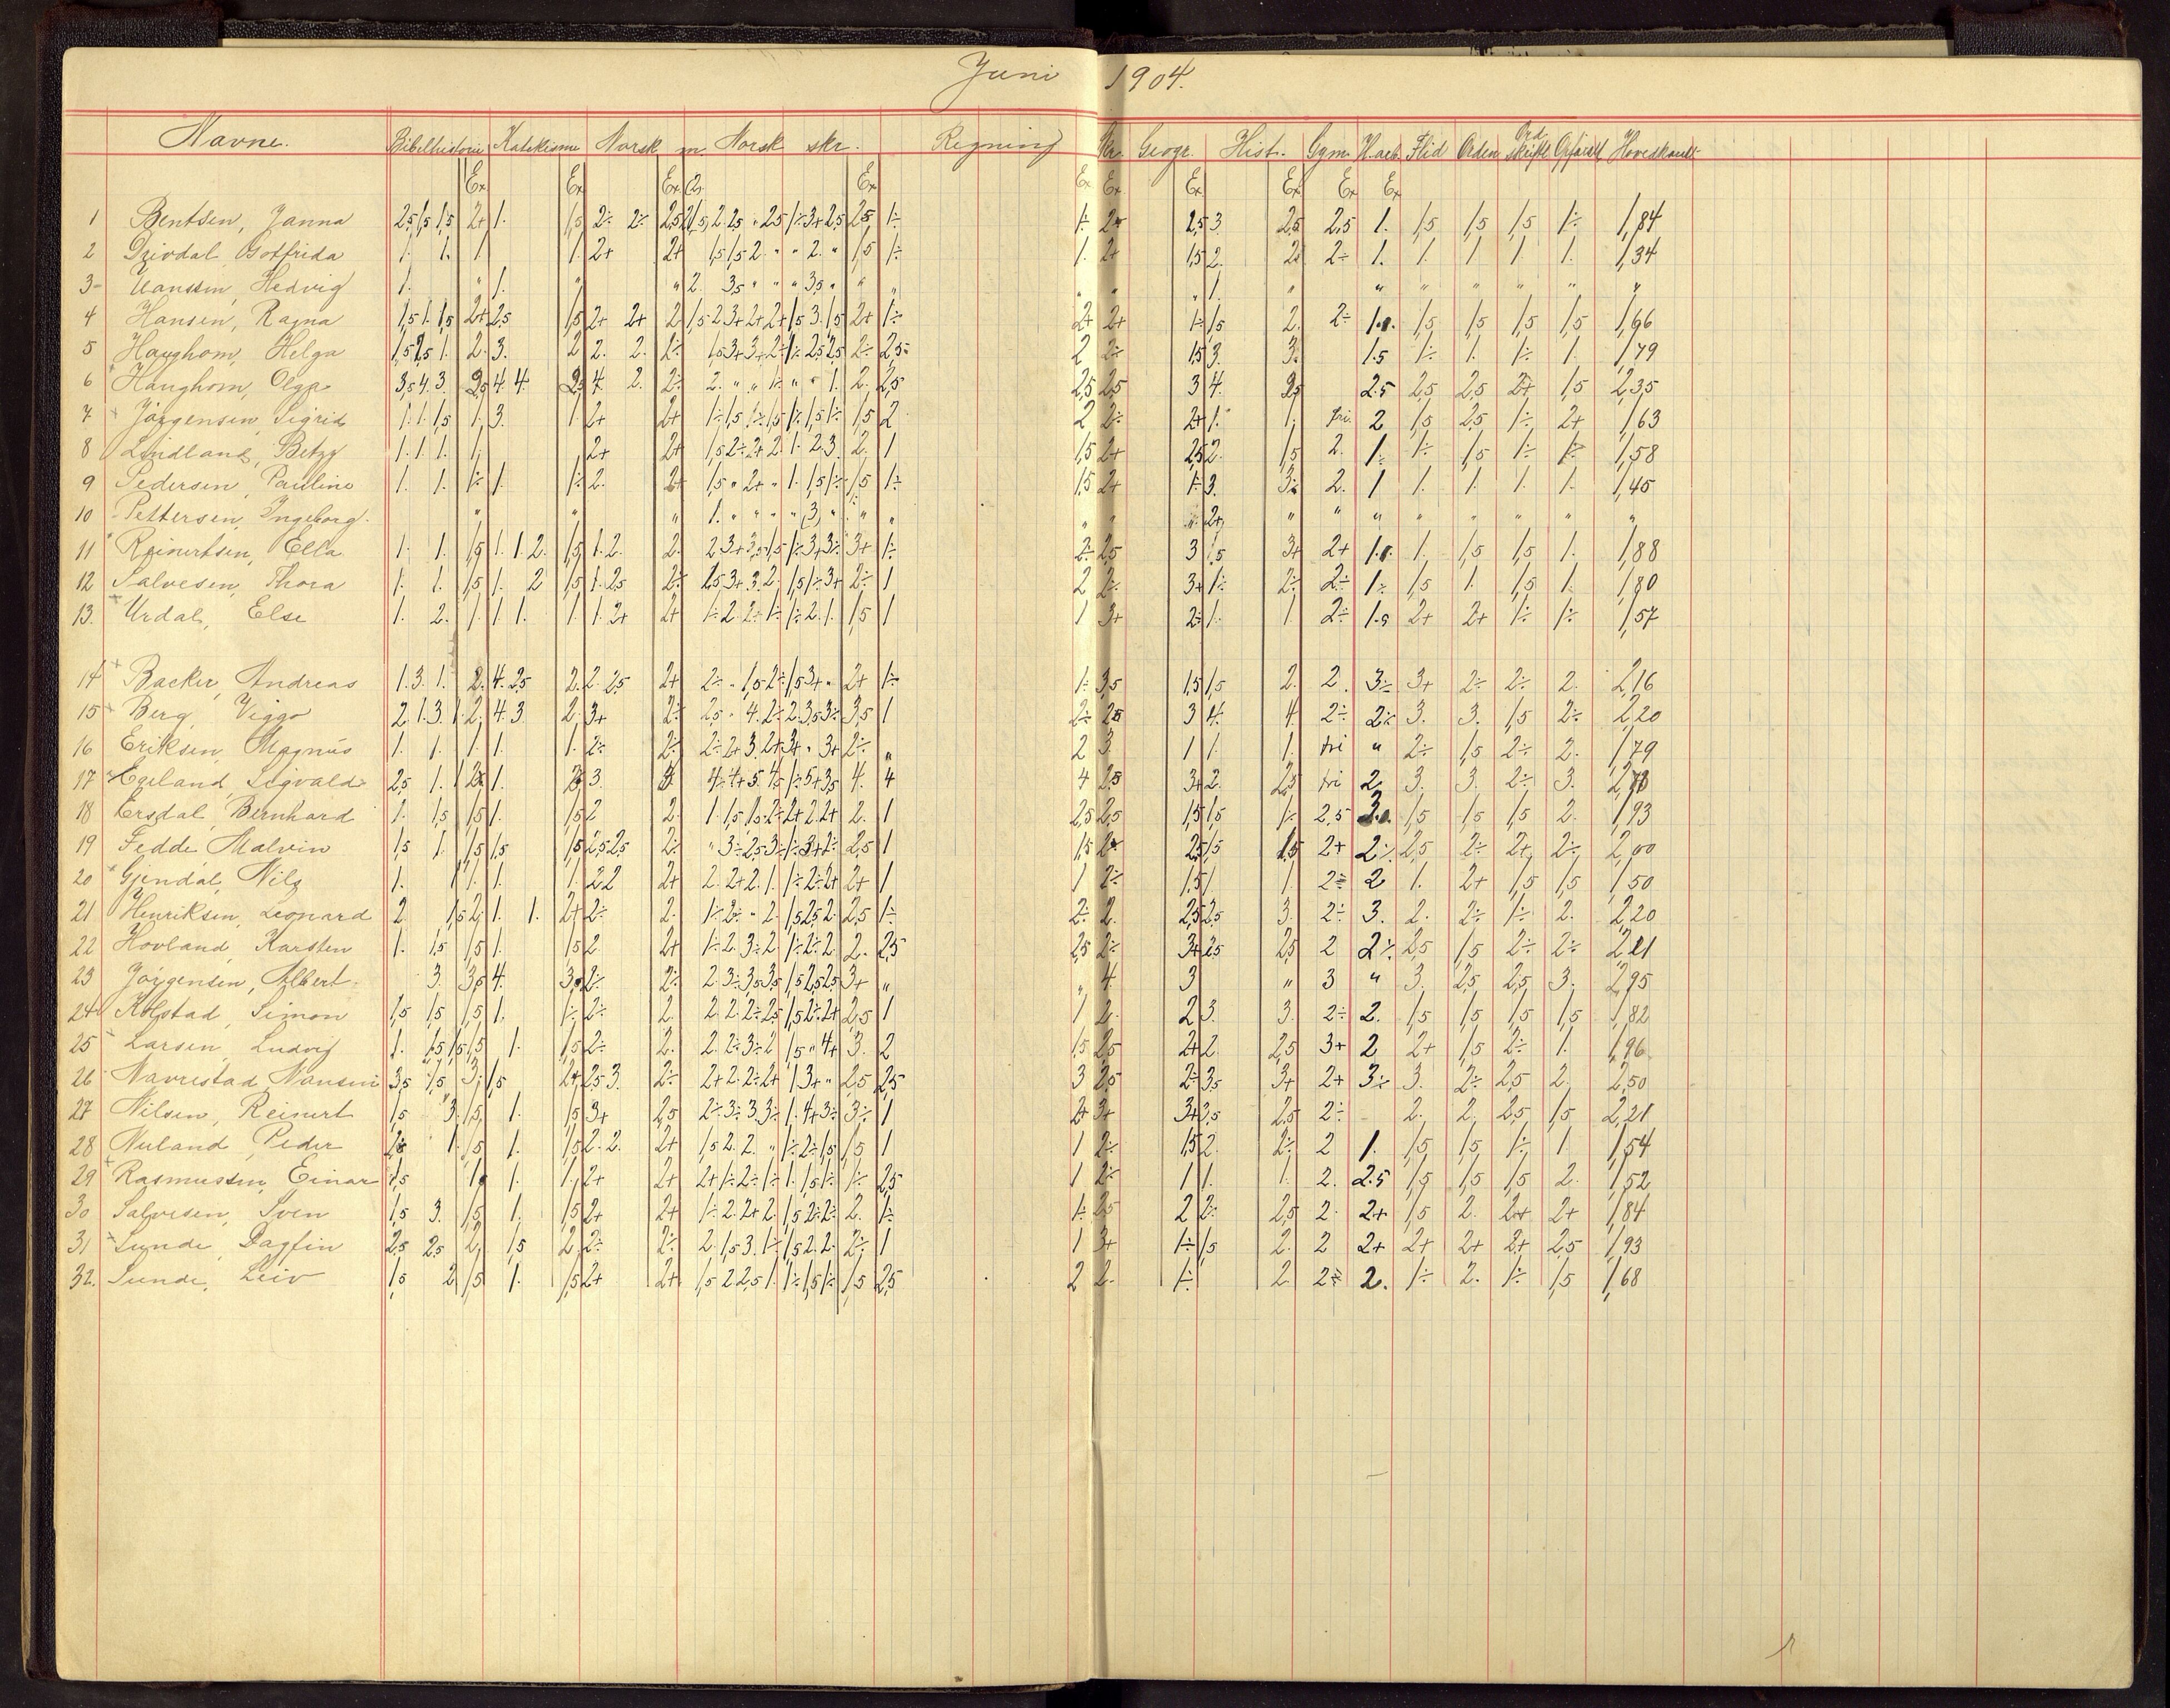 Juni 1904.
Navne. Bibelhistorie Katekisme Norsk m. Norsk skr. Regning Skr. Geogr. Hist. Gym. H.arb. Flid Orden Ord. skriftl. Opførsel Hovedkarakt.
Ex Ex Ex Ex Ex Ex Ex Ex Ex Ex
1 Bentsen, Janna 2,5 1,5 1,5 2+ 1. 1,5 2÷ 2÷ 2,5 1÷ 2,5 3 2,5 2,5 1. 1,5 1,5 1,5 1÷ 1,84
2 Gotfrida 1. 1. 1 1. 2+ 2+ 1,5 1,5 2 " " 2. " 1,5 1÷ 1. 2+ 1,5 2. 2 2÷ 1. 1. 1 1 1. 1,34
3 Hanssen, Hedvig 1. " 1. " " 2. 3,5 " " " 3,5 " " " " " " 1. " " " " " " "
4 Hansen, Ragna 1,5 1. 1,5 2+ 2,5 1,5 2+ 2+ 2 1,5 2 3+ 2+ 2+ 1,5 3. 1,5 2+ 1÷ 2+ 2+ 1÷ 1,5 2. 2÷ 1,5 1,5 1,5 1,5 1,66
5 Haughom, Helga 1,5 2,5 1. 2. 3. 2 2. 2. 2÷ 1,5 3+ 3+ 2÷ 1÷ 2,5 2,5 2÷ 2,5 2 2÷ 1,5 3. 3. 1.5 1÷ 1. 1÷ 1. 1,79
6 Haughom, Olga 3,5 4. 3. 2,5 4 4. 2,5 4. 2. 2÷ 2. " " 1÷ " " 1. 2. 2,5 2,5 2,5 3 4. 2,5 2.5 2,5 2,5 2+ 1,5 2,35
7 Jørgensen, Sigrid 1. 1. 1,5 1. 3. 1 2+ 2+ 1÷ 1,5 1÷ 1,5 1÷ 1,5 1÷ 1,5 2 2 2÷ 2+ 1. 1. fri. 2 1,5 2,5 1÷ 2+ 1,63
8 Lindland, Betzy 1. 1. 1. 1. 2+ 2+ 1,5 2÷ 2+ 2 1. 2. 3. 2. 1 1,5 2+ 2,5 2. 1,5 2. 1÷ 1÷ 1,5 1÷ 1÷ 1,58
9 Pedersen, Pauline 1. 1. 1÷ 1. 1÷ 2. 2+ 1,5 " 2+ " 1. 1,5 1÷ 1,5 1÷ 1,5 2+ 1÷ 3. 3÷ 2. 1 1. 1. 1. 1. 1,45
10 Pettersen, Ingeborg. " " " 1. " " " " 3 " " " " " " 2+ " " " " " " " "
11 Reinertsen, Ella 1. 1. 1,5 1. 1. 2. 1,5 1. 2. 2. 2 3+ 3,5 1,5 1÷ 3+ 3÷ 3+ 1÷ 2÷ 2,5 3 1,5 3+ 2+ 1. 1,5 1,5 1. 1,88
12 Salvesen, Thora 1. 1. 1,5 1. 2 1,5 1. 2,5 2÷ 2,5 3+ 3. 2. 1,5 1÷ 3+ 2÷ 1 2 2÷ 3+ 1÷ 2÷ 2÷ 1÷ 1,5 1. 1,5 1. 1,80
13. Urdal, Else 1. 2. 1. 1. 1. 1. 1. 2+ 2+ 1÷ 2. 2÷ 1÷ 1÷ 2. 1. 1,5 1 1 3+ 2÷ 1. 1. 2÷ 2+ 2+ 1÷ 1÷ 1,57
14 Backer, Andreas 1. 3. 1. 2. 4. 2,5 2. 2. 2,5 2+ 2÷ " 1,5 2÷ 1,5 3+ " 2+ 1÷ 1÷ 3,5 1,5 1,5 2. 2. 3÷ 3+ 2÷ 2÷ 2. 2,16
15 Berg, Viggo 2. 1. 3. 1. 2. 4. 3. 2. 3+ 2÷ 2,5 " 4. 2÷ 2. 3,5 3÷ 3,5 1 2÷ 2,5 3 4. 4. 2÷ 2÷ 3. 3. 1,5 2÷ 2,20
16 Eriksen, Magnus 1. 1. 1. 1. 1. 2÷ 2÷ 2÷ 2+ 3. 2+ 3+ " 3+ 2÷ " 2 3. 1 1. 1. fri " 2÷ 1,5 2÷ 2. 1,79
17 Egeland, Sigvald 2,5 1. 1 2 1. 3. 4÷ 4+ 5. 4,5 1÷ 5+ 3,5 4. 4 4 2,5 3+ 2. 2,5 fri 2 3. 3. 2÷ 3.
18 Ersdal, Bernhard 1. 1,5 1,5 1. 1,5 2 2. 1. 1,5 1,5 2÷ 2+ 2. 2+ 2. 1 2,5 2,5 1,5 1,5 1÷ 2,5 1,5 1,5 1,5 2. 1,93
19 Fedde Malvin 1,5 1. 1,5 1,5 1,5 2,5 2,5 2÷ " 3÷ 2,5 3÷ 1÷ 3+ 1÷ 2,5 1 1,5 2 2,5 1,5 1,5 2+ 2÷ 2,5 2÷ 2+ 2÷ 2,00
20 Gjendal, Nils 1. 1. 1. 1. 1. 2 2 2+ 2. 2+ 2. 1. 1÷ 2÷ 2+ 2+ 1 1 2÷ 1,5 1. 1. 2÷ 2 1. 2+ 1,5 1,5 1,50
21 Henriksen, Leonard 2. 1,5 2. 1. 1. 2+ 2÷ 2. 1÷ 2÷ " 2. 1,5 2,5 2. 2,5 1÷ 2÷ 2. 2,5 2,5 3. 2÷ 3. 2. 2÷ 1÷ 2. 2,20
22 Hovland, Karsten 1. 1,5 1,5 1. 1,5 2 2+ 1÷ 2. 3÷ 2. 1÷ 2÷ 2. 2. 2,5 2,5 2÷ 3+ 2,5 2,5 2 2÷ 2,5 1,5 2÷ 2÷ 2,21
23 Jørgensen, Albert. 3. 3,5 4. 3. 2÷ 2÷ 2. 3÷ 3,5 3,5 1,5 2,5 2,5 3+ " " 4. 3 " 3 " 3. 2,5 2,5 3. 2,95
24 Kolstad, Simon 1,5 1,5 1,5 1. 1÷ 2÷ 2. 2. 2. 2÷ 2,5 1,5 2÷ 2+ 2,5 1 1 2. 2 3. 3. 2÷ 2. 1,5 1,5 1,5 1,5 1,82
25 Larsen, Ludvig 1. 1,5 1,5 1,5 1. 1,5 2÷ 2. 2. 2÷ 3÷ 2 1,5 " 4+ 3. 2 1,5 2,5 2+ 2. 2,5 3+ 2 2+ 1,5 2÷ 1. 1,96
26 Navrestad, Nansen 3,5 1,5 3. 1,5 2+ 2,5 3. 2÷ 2+ 2. 2÷ 2+ 1 3+ " 2,5 2,5 3 2,5 2÷ 3,5 3+ 2+ 3÷ 3. 2÷ 2,5 2. 2,50
27 Nilsen, Reinert 1,5 3. 1,5 1. 1,5 3+ 2,5 2÷ 3÷ 3. 3÷ 1. 4+ 3÷ 3÷ 1 2+ 3+ 3+ 3,5 2,5 2÷ 2. 2. 2,5 1,5 2,21
28 Nuland, Peder 1. 1,5 1. 1,5 2. 2. 2+ 1,5 2. 2. " 1÷ 2÷ 1,5 1,5 1 1 2÷ 1,5 2. 2÷ 2 1. 1,5 1,5 1÷ 1 1,54
29 Rasmussen, Einar 1,5 1 1. 1. 2+ 2+ 2+ 1÷ 2÷ 1÷ 1. 1,5 1÷ 1÷ 2,5 1 2÷ 1 1. 1. 2. 2.5 1,5 1,5 1,5 2. 1,52
30 Salvesen, Sven 1,5 3. 1,5 1. 1,5 2+ 2+ 1÷ 2. 2+ 2. 1,5 2÷ 2÷ 2. 1÷ 1÷ 2,5 2 2÷ 2,5 2. 2+ 1,5 2. 2+ 2+ 1,84
31 Sunde, Dagfin 2,5 2,5 2. 1,5 2. 2÷ 2÷ 2. 1,5 3. 1÷ 1,5 2. 2. 2÷ 1 1 3+ 1÷ 1,5 2. 2 2+ 2+ 2+ 2+ 2,5 1,93
32. Sunde, Leiv 1,5 2 1,5 1. 1,5 2+ 2+ 1,5 2 2,5 1. 1÷ 1,5 1÷ 1,5 2,5 2 2. 1÷ 2. 2÷ 2. 1÷ 2. 1÷ 1,5 1,68